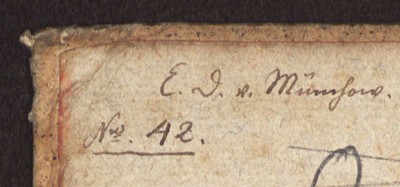 E. D. v. Münchow.
No. 42.